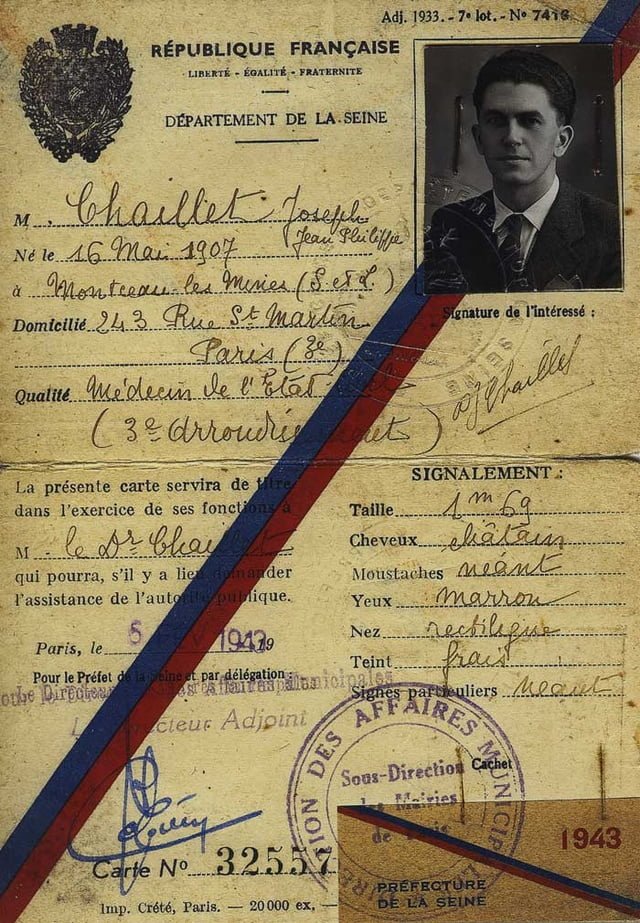 Adj. 1933. - 7e lot. - No 7413
RÉPUBLIQUE FRANÇAISE
LIBERTÉ - ÉGALITÉ - FRATERNITE
DÉPARTEMENT DE LA SEINE
M. Chaillet Joseph
Jean Philippe
Né le 16 Mai 1907
à Montceau-les Mines (S et L.)
Domicilié 243 Rue St Martin
Paris (3e)
Qualité Médecin de l'Etat-
(3e Arrondissement)
Signature de l'intéressé :
Chaillet
La présente carte servira de titre
dans l'exercice de ses fonctions à
M. le Dr Chaillet
qui pourra, s'il y a lieu demander
l'assistance de l'autorité publique.
Paris, le 6 FEV 1943 19
Pour le Préfet de la Seine et par délégation :
Le Directeur des Affaires Municipales
Directeur Adjoint
SIGNALEMENT :
Taille 1m69
Cheveux châtain
Moustaches néant
Yeux marron
Nez rectiligne
Teint frais
Signes particuliers néant
Cachet
DIRECTION DES AFFAIRES MUNICIPALES
Sous-Direction
des Mairies
de Paris
Carte No 32557
Imp. Crété, Paris. — 20000 ex, —
1943
PRÉFECTURE
DE LA SEINE